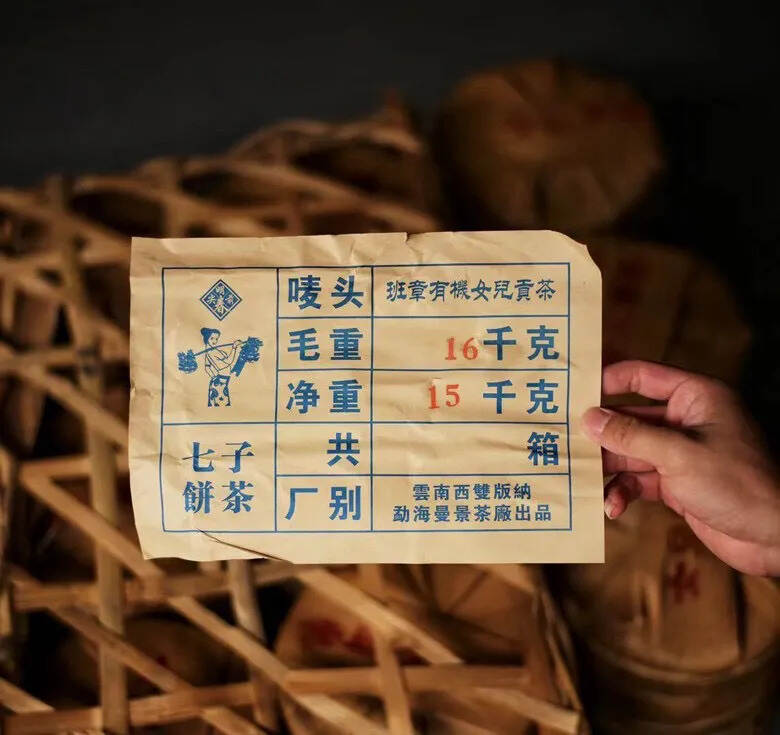 唛头 班章有機女兒貢茶
毛重 16千克
净重 15千克
七子
餅茶
共 箱
厂别 雲南西雙版納
勐海曼景茶廠出品